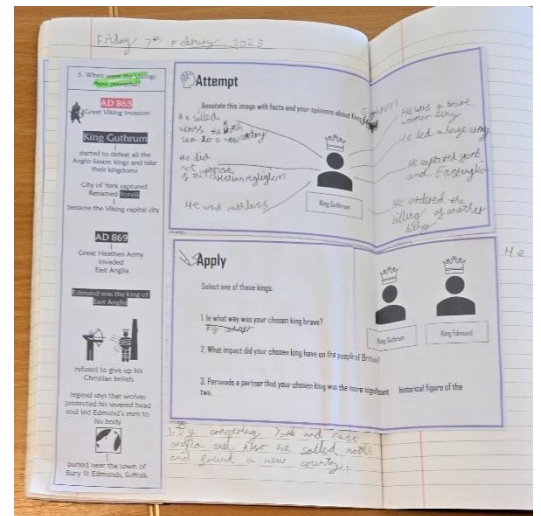 Friday 7th February 2025
5. When were the Vikings
most powerful?
AD 865
Great Viking Invasion
King Guthrum
started to defeat all the
Anglo-Saxon kings and take
their kingdoms
City of York captured
Renamed Jorvik
became the Viking capital city
AD 869
Great Heathen Army
invaded
East Anglia
Edmund was the king of
East Anglia
refused to give up his
Christian beliefs
legend says that wolves
protected his severed head
and led Edmund's men to
his body
buried near the town of
Bury St Edmunds, Suffolk
Attempt
Annotate this image with facts and your opinions about King
He sailed
across the
sea to a new country
He did
not
He was ruthless
He was a brave
He led a large army
He captured york
and East anglia
He ordered the
killing of another
king
King Guthrum
Apply
Select one of these kings.
1. In what way was your chosen king brave?
2. What impact did your chosen king have on the people of Britain?
3. Persuade a partner that your chosen king was the more significant historical figure of the
two.
King Guthrum
King Edmund
He
1. By York and East
anglia and also he sailed north
and found a new country.